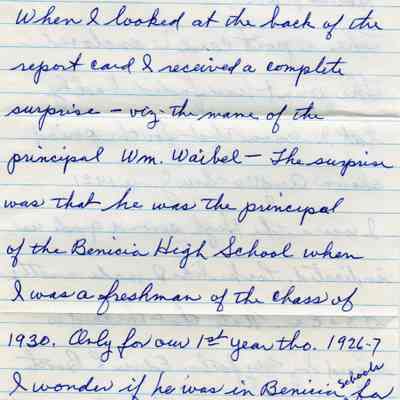 When I looked at the back of the
report card I received a complete
surprise – viz. the name of the
principal Wm. Waibel – The surprise
was that he was the principal
of the Benicia High School when
I was a freshman of the class of
1930. Only for our 1st year tho. 1926-7
I wonder if he was in Benicia Schools